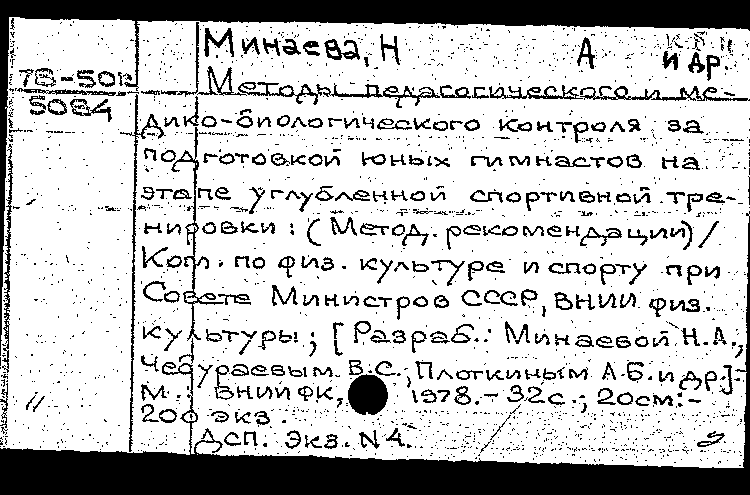 Минаева, Н А и др.
78-50в
5084
Методы педагогического и ме-
дико-биологического контроля за
подготовкой юных гимнастов на
этапе углубленной спортивной тре-
нировки : (Метод. рекомендации) /
Ком. по физ. культуре и спорту при
Совете Министров СССР, ВНИИ физ.
культуры ; [Разраб.: Минаевой Н.А.,
Чебураевым В.С., Плоткиным А.Б. и др.].-
М. : ВНИИФК, 1978. - 32 с. ; 20см.-
200 экз.
ДСП. Экз. N 4.